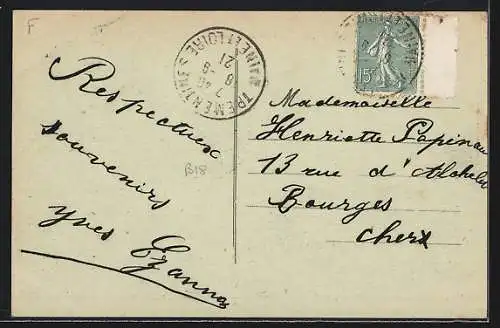 F
TREMENTINES
MAINE ET LOIRE
7 8
21
15c
Respectueux
souvenirs
Yves Ezannas
B18
Mademoiselle
Henriette Papineau
13 rue d'
Bourges
Cher